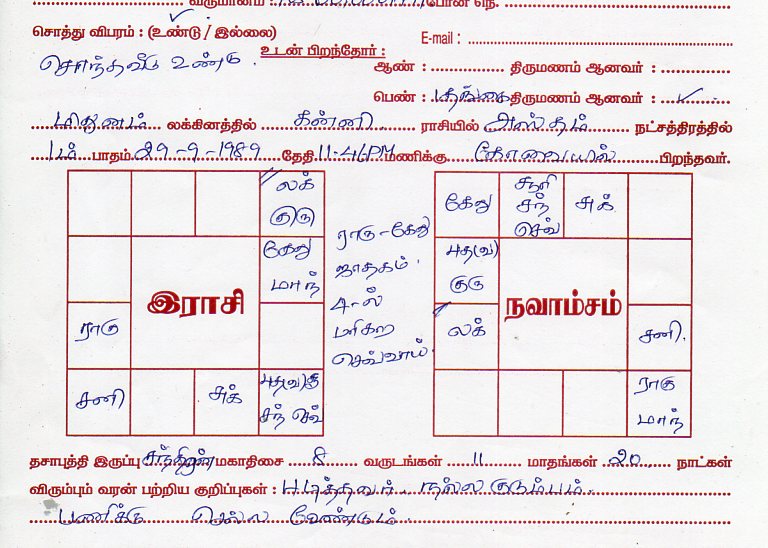 வருமானம் : போன் நெ.
சொத்து விபரம் : (உண்டு / இல்லை) E-mail :
சொந்தவீடு உண்டு. உடன் பிறந்தோர் :
ஆண் : திருமணம் ஆனவர் :
பெண் : தங்கை திருமணம் ஆனவர் : ✓
மிதுனம் லக்கினத்தில் கன்னி ராசியில் அஸ்தம் நட்சத்திரத்தில்
1ம் பாதம் 29-9-1989 தேதி 11:46PM மணிக்கு கோவையில் பிறந்தவர்.
லக்
குரு
கேது
மாந்
இராசி
ராகு
சனி
சுக்
புத(வ)
சந் செவ்
ராகு-கேது
ஜாதகம்.
4-ல்
மறைகிற
செவ்வாய்.
கேது
சூரி
சந்
செவ்
சுக்
புத(வ)
குரு
நவாம்சம்
லக்
சனி.
ராகு
மாந்
தசாபுத்தி இருப்பு சந்திரன் மகாதிசை 8 வருடங்கள் 11 மாதங்கள் 20 நாட்கள்
விரும்பும் வரன் பற்றிய குறிப்புகள் : படித்தவர். நல்ல குடும்பம்.
பணிக்கு செல்ல வேண்டும்.